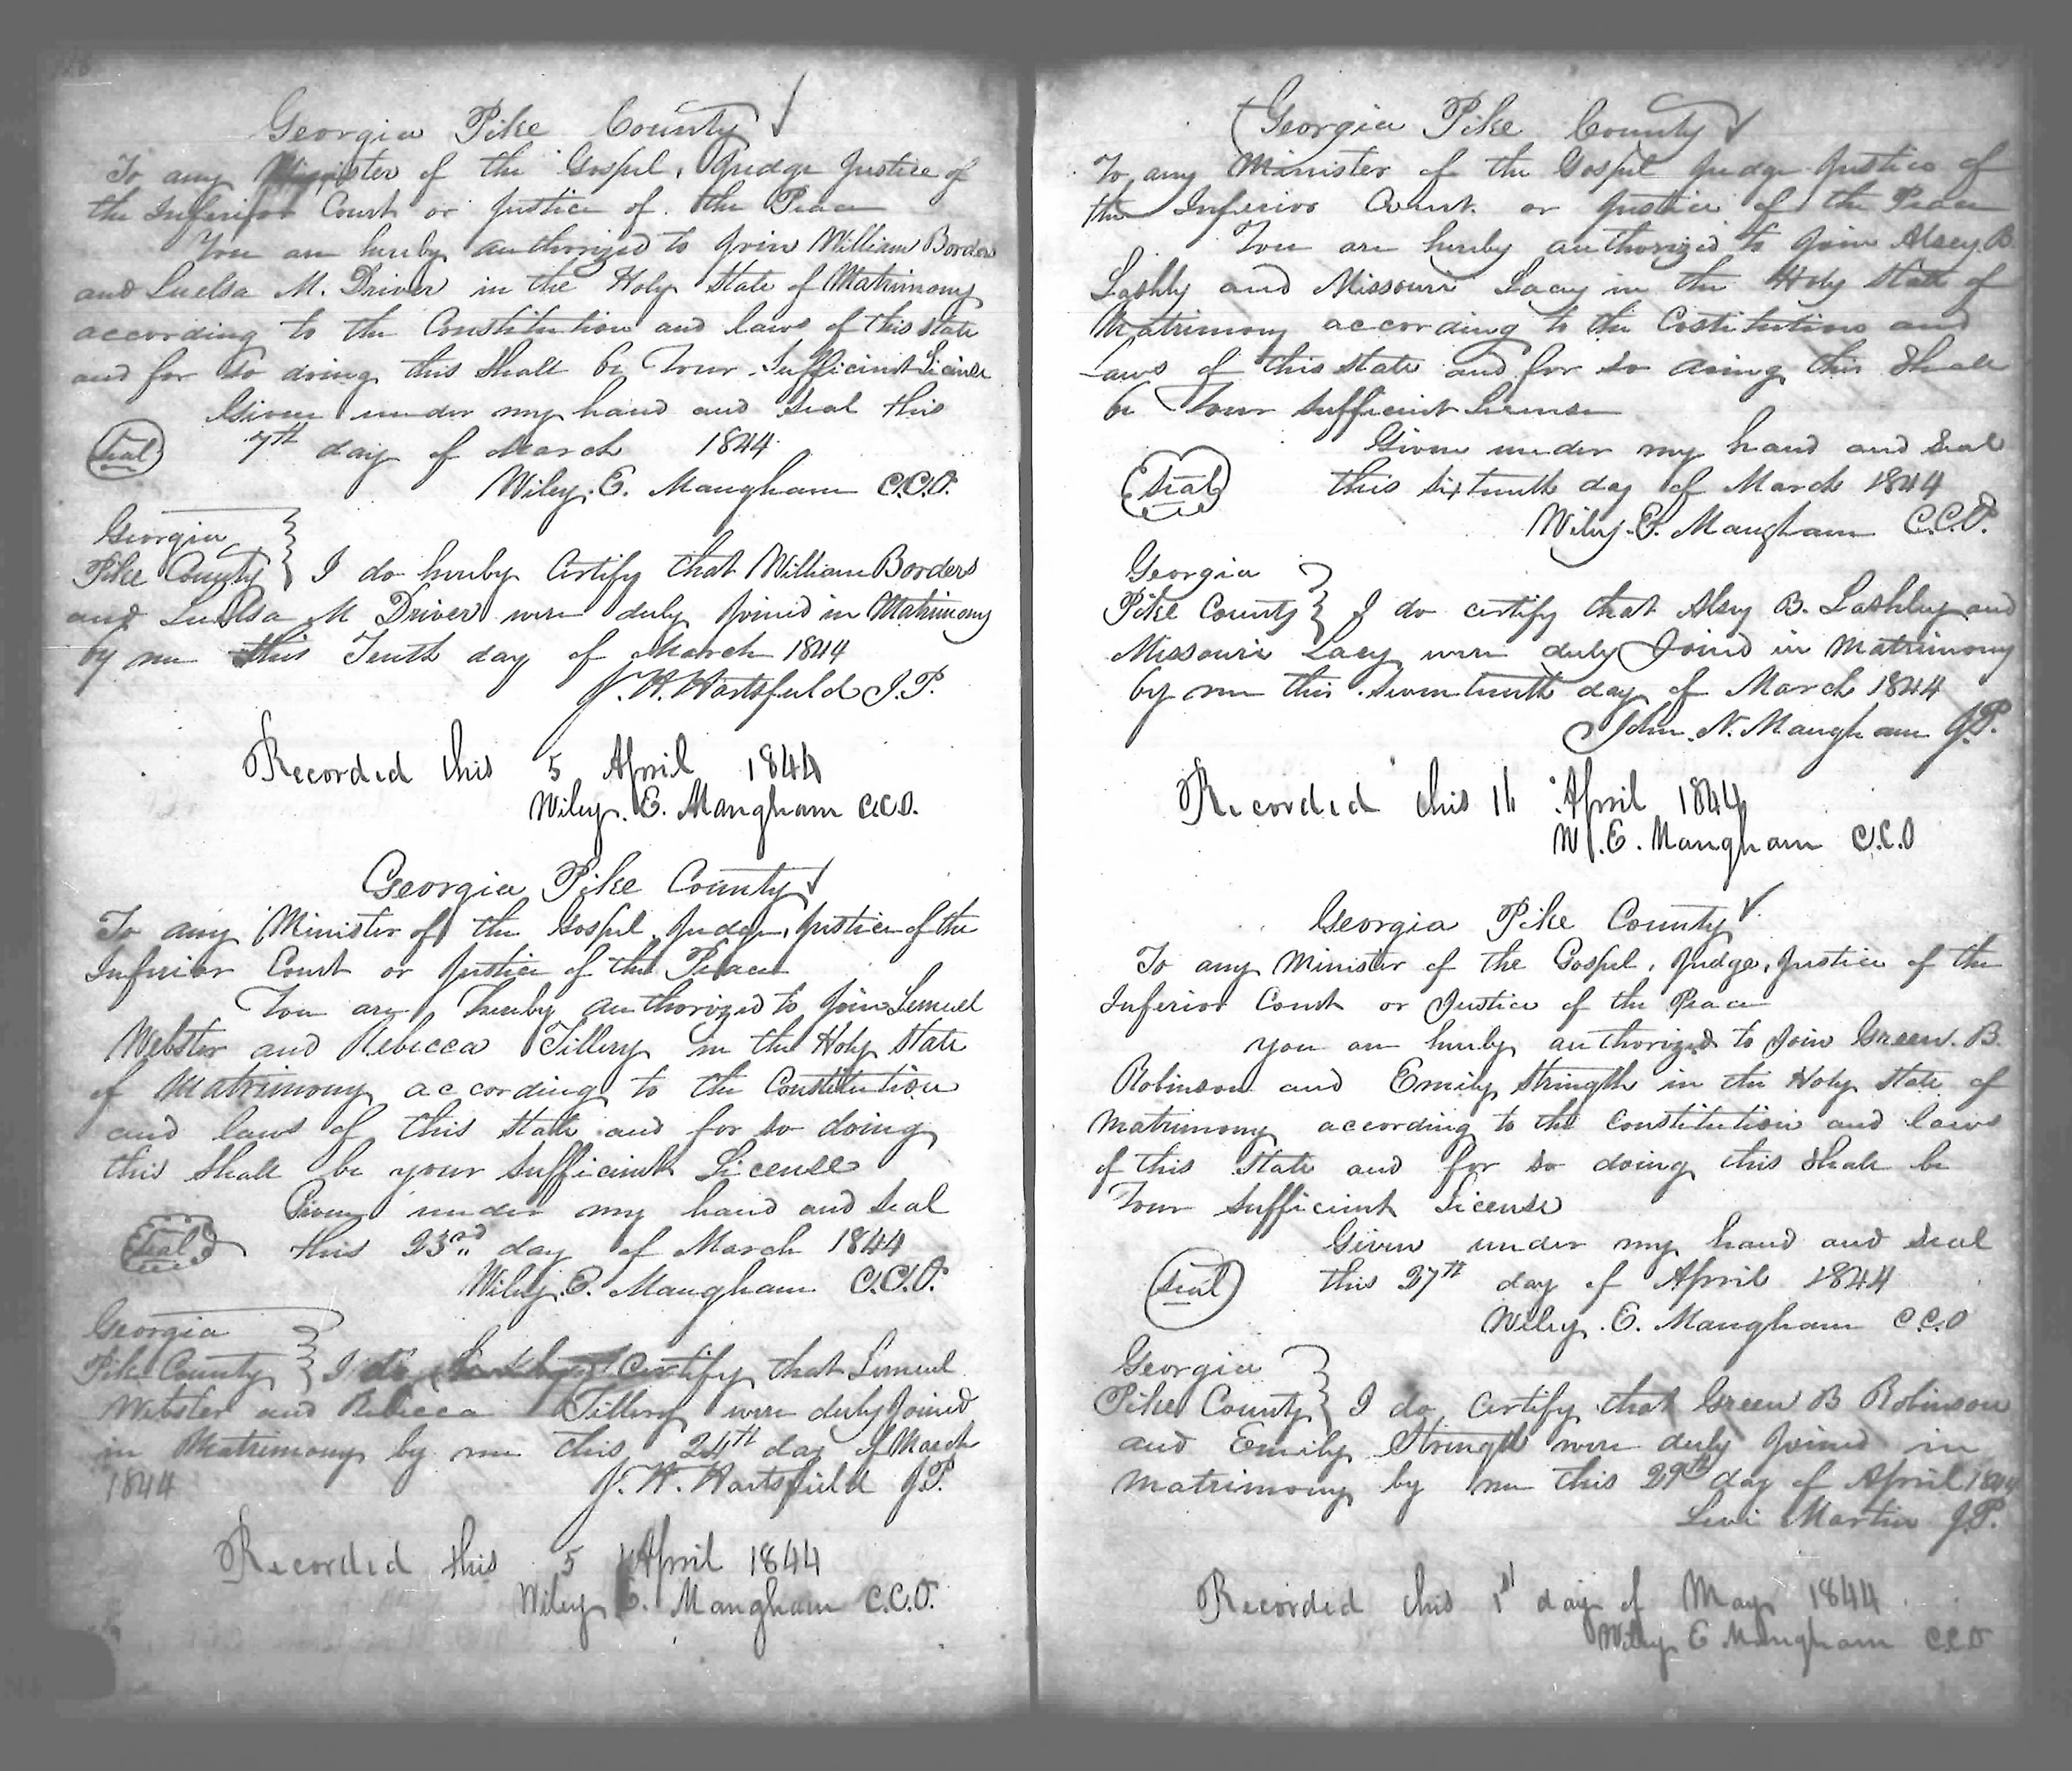 Georgia Pike County
To any Minister of the Gospel, Judge Justice of
the Inferior Court or Justice of the Peace
You are hereby authorized to join William Borders
and Luelsa M. Driver in the Holy State of Matrimony
according to the Constitution and laws of this State
and for So doing this Shall be Your Sufficient License
Given under my hand and Seal this
Seal 7th day of March 1844
Wiley. E. Mangham C.C.O.
Georgia
Pike County } I do hereby Certify that William Borders
and Luelsa M Driver were duly Joined in Matrimony
by me this Tenth day of March 1844
J. W. Hartsfield J.P.
Recorded this 5 April 1844
Wiley. E. Mangham C.C.O.
Georgia Pike County
To any Minister of the Gospel, Judge, Justice of the
Inferior Court or Justice of the Peace
You are hereby authorized to join Lemuel
Webster and Rebecca Tillery in the Holy State
of Matrimony according to the Constitution
and laws of this State and for So doing
this Shall be your Sufficient License
Given under my hand and Seal
Seal this 23rd day of March 1844
Wiley. E. Mangham C.C.O.
Georgia
Pike County } I do Certify that Lemuel
Webster and Rebecca Tillery were duly Joined
in Matrimony by me this 24th day of March
1844 J. W. Hartsfield J.P.
Recorded this 5 April 1844
Wiley E. Mangham C.C.O.
Georgia Pike County
To any Minister of the Gospel Judge Justice of
the Inferior Court or Justice of the Peace
You are hereby authorized to Join Alsey B.
Lashly and Missouri Lacy in the Holy State of
Matrimony according to the Costitution and
Laws of this State and for So doing this Shall
be Your Sufficient License
Given under my hand and Seal
Seal this Sixteenth day of March 1844
Wiley. E. Mangham C.C.O.
Georgia
Pike County } I do certify that Alsey B. Lashley and
Missouri Lacy were duly Joined in Matrimony
by me this Seventeenth day of March 1844
John. N. Mangham J.P.
Recorded this 16 April 1844
W. E. Mangham C.C.O
Georgia Pike County
To any Minister of the Gospel, Judge, Justice of the
Inferior Court or Justice of the Peace
you are hereby authorized to Join Green. B.
Robinson and Emily Strength in the Holy State of
Matrimony according to the Constitution and laws
of this State and for So doing this Shall be
Your Sufficient License
Given under my hand and Seal
Seal this 27th day of April 1844
Wiley. E. Mangham C.C.O
Georgia
Pike County } I do Certify that Green B Robinson
and Emily Strength were duly Joined in
Matrimony by me this 29th day of April 1844
Levi Martin J.P.
Recorded this 1st day of May 1844
Wiley E Mangham C.C.O